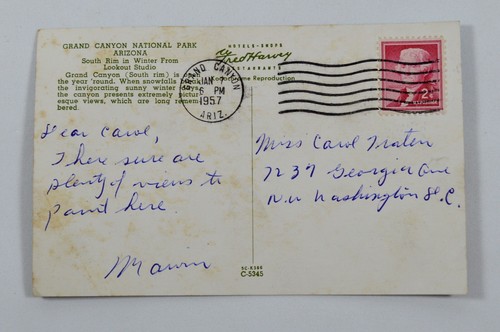 GRAND CANYON NATIONAL PARK
ARIZONA
South Rim in Winter From
Lookout Studio
Grand Canyon (South rim) is
the year 'round. When snowfalls
the invigorating sunny winter days,
the canyon presents extremely pictur-
esque views, which are long remem-
bered.
HOTELS - SHOPS
Fred Harvey
RESTAURANTS
Kodachrome Reproduction
GRAND CANYON
JAN
6 PM
1957
ARIZ.
2¢
Dear Carol,
There sure are
plenty of views to
paint here.
Marvin
Miss Carol
7237 Georgia Ave
N.W. Washington D.C.
C-5345